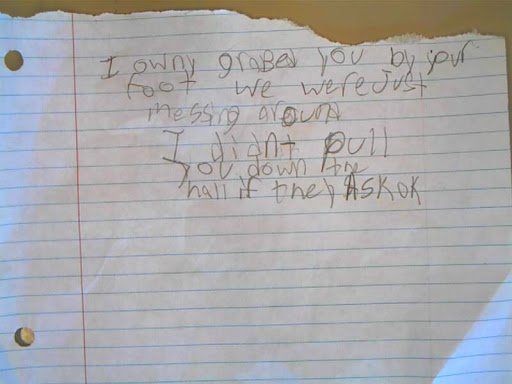 I owny grabed you by your
foot we were Just
messing around
I didnt pull
you down the
hall if they ASK OK